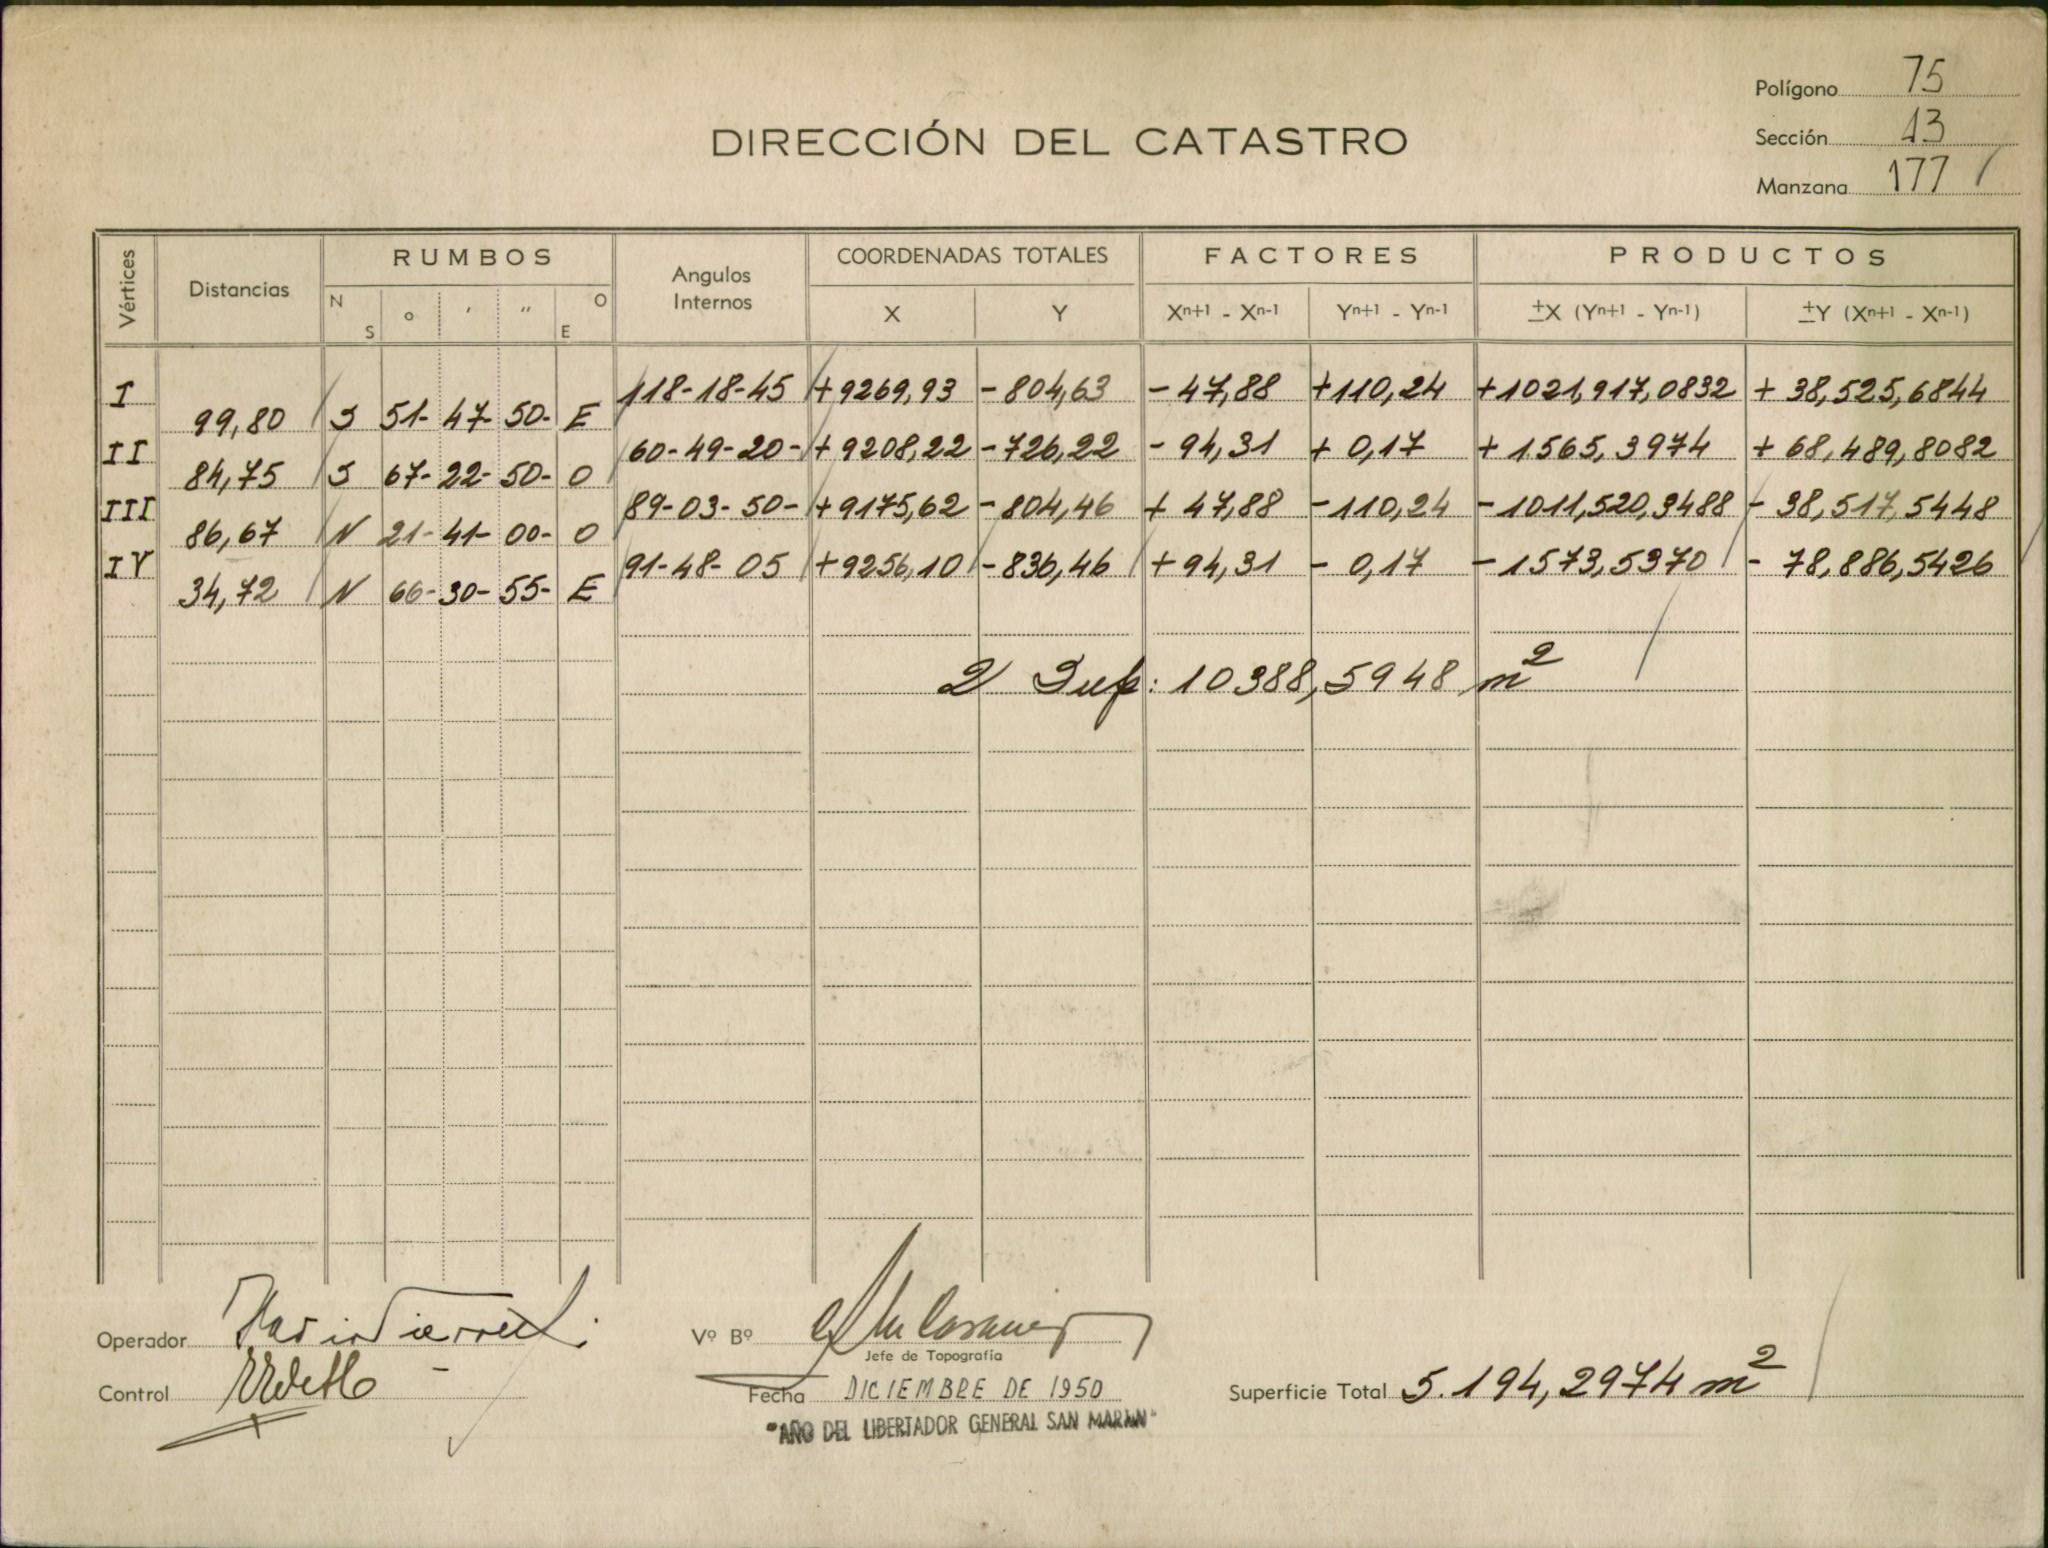 Polígono 75
DIRECCIÓN DEL CATASTRO
Sección 13
Manzana 177
Vértices Distancias RUMBOS Angulos Internos COORDENADAS TOTALES FACTORES PRODUCTOS
N S ° ' " O E X Y Xn+1 - Xn-1 Yn+1 - Yn-1 ±X (Yn+1 - Yn-1) ±Y (Xn+1 - Xn-1)
I 118-18-45 +9269,93 -804,63 -47,88 +110,24 +1021,917,0832 + 38,525,6844
99,80 S 51- 47- 50- E
II 60-49-20- +9208,22 -726,22 - 94,31 + 0,17 + 1565,3974 + 68,489,8082
84,75 S 67- 22- 50- O
III 89-03-50- +9175,62 -804,46 + 47,88 -110,24 -1011,520,3488 - 38,517,5448
86,67 N 21- 41- 00- O
IV 91-48-05 +9256,10 -836,46 +94,31 - 0,17 -1573,5370 - 78,886,5426
34,72 N 66- 30- 55- E
2 Sup: 10388,5948 m2
Operador
Vº Bº
Jefe de Topografía
Control
Fecha DICIEMBRE DE 1950
Superficie Total 5.194,2974 m2
"AÑO DEL LIBERTADOR GENERAL SAN MARTIN"